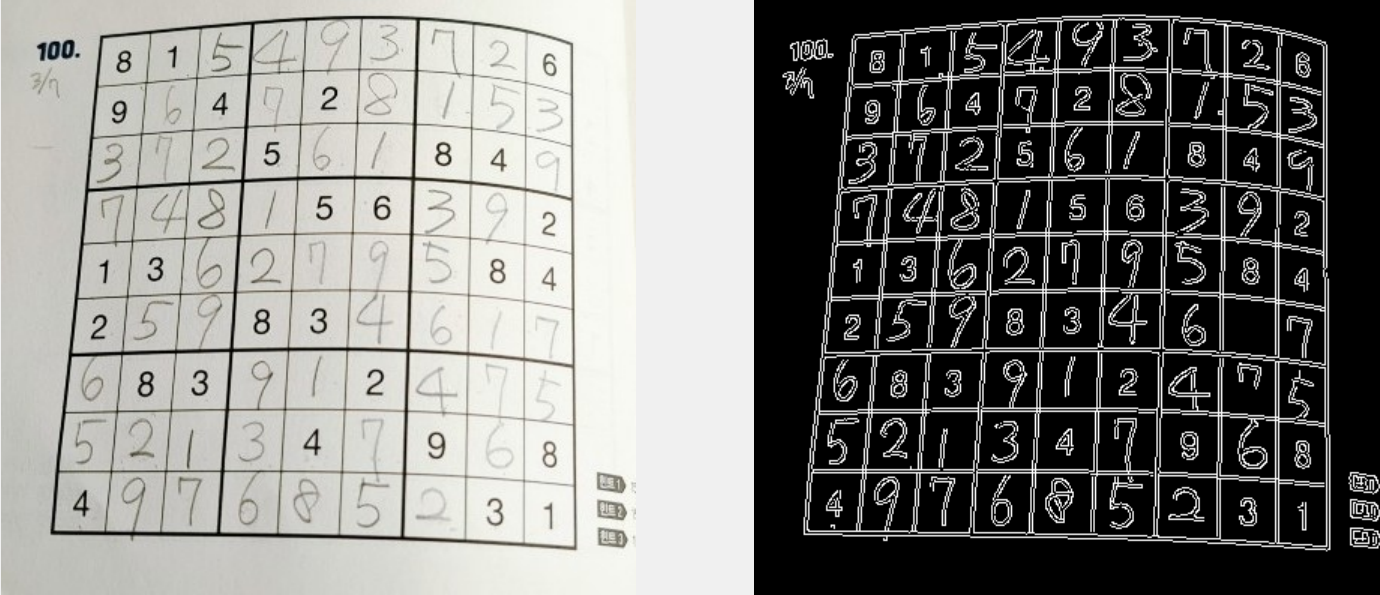 100.
3/7
8 1 5 4 9 3 7 2 6
9 6 4 7 2 8 1 5 3
3 7 2 5 6 1 8 4 9
7 4 8 1 5 6 3 9 2
1 3 6 2 7 9 5 8 4
2 5 9 8 3 4 6 1 7
6 8 3 9 1 2 4 7 5
5 2 1 3 4 7 9 6 8
4 9 7 6 8 5 2 3 1
힌트 1
힌트 2
힌트 3
100.
3/7
8 1 5 4 9 3 7 2 6
9 6 4 7 2 8 1 5 3
3 7 2 5 6 1 8 4 9
7 4 8 1 5 6 3 9 2
1 3 6 2 7 9 5 8 4
2 5 9 8 3 4 6 7
6 8 3 9 1 2 4 7 5
5 2 1 3 4 7 9 6 8
4 9 7 6 8 5 2 3 1